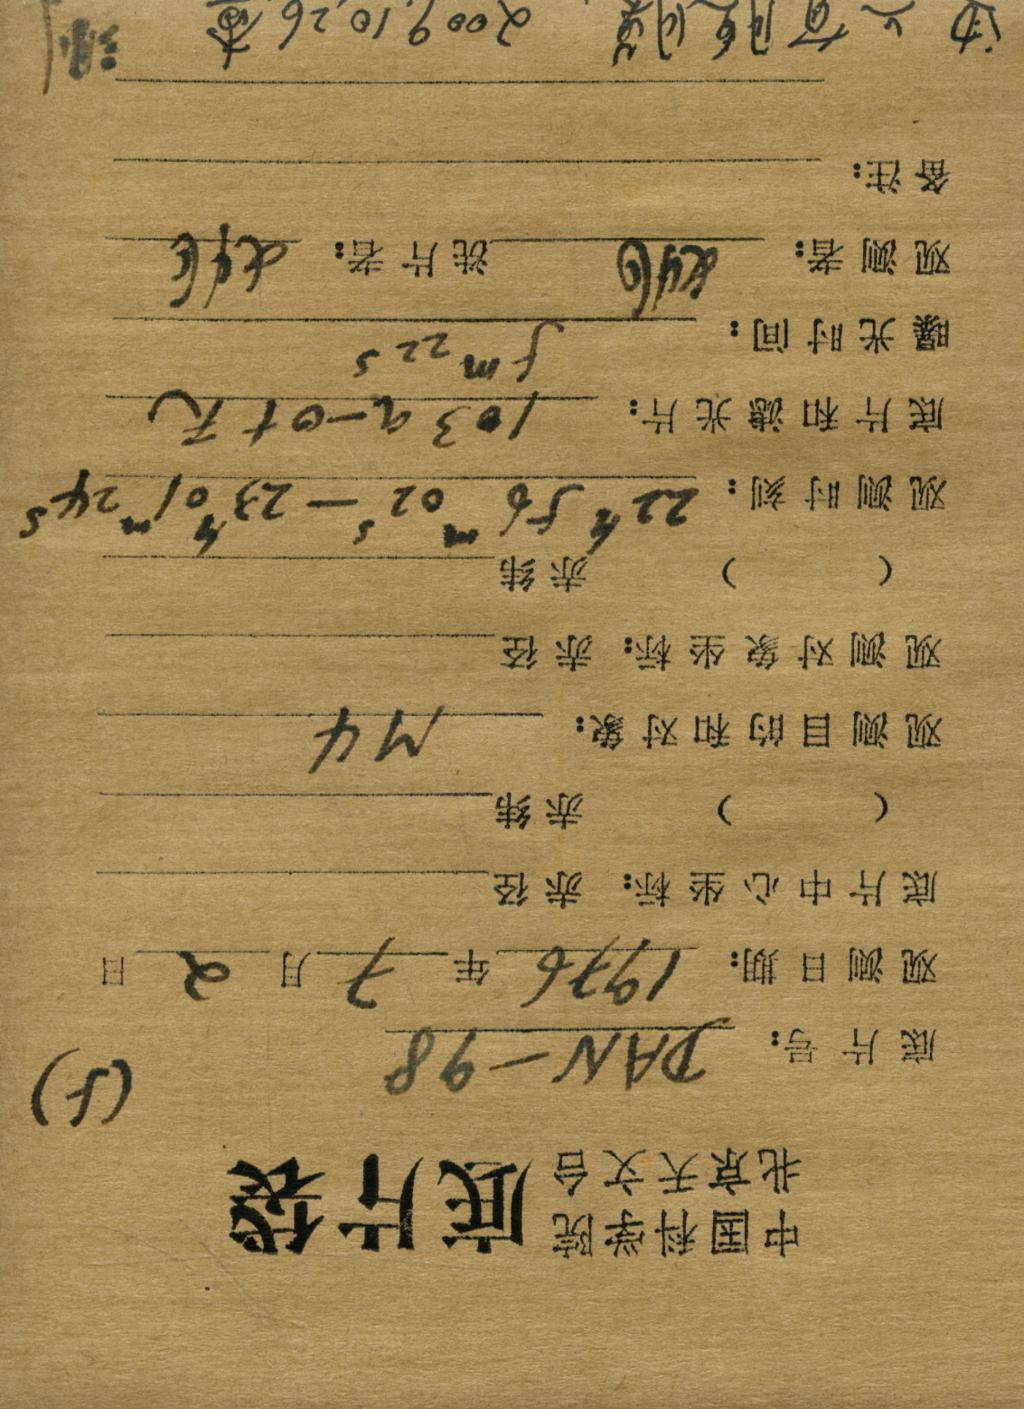 中国科学院
北京天文台
底片袋
(5)
底片号: DAN-98
观测日期: 1976 年 7 月 2 日
底片中心坐标: 赤径
( ) 赤纬
观测目的和对象: M4
观测对象坐标: 赤径
( ) 赤纬
观测时刻: 22h 56m 02s — 23h 01m 24s
底片和滤光片: 103a-O+无
曝光时间: 5m 22s
观测者: 洗片者:
备注:
2009.10.26 查